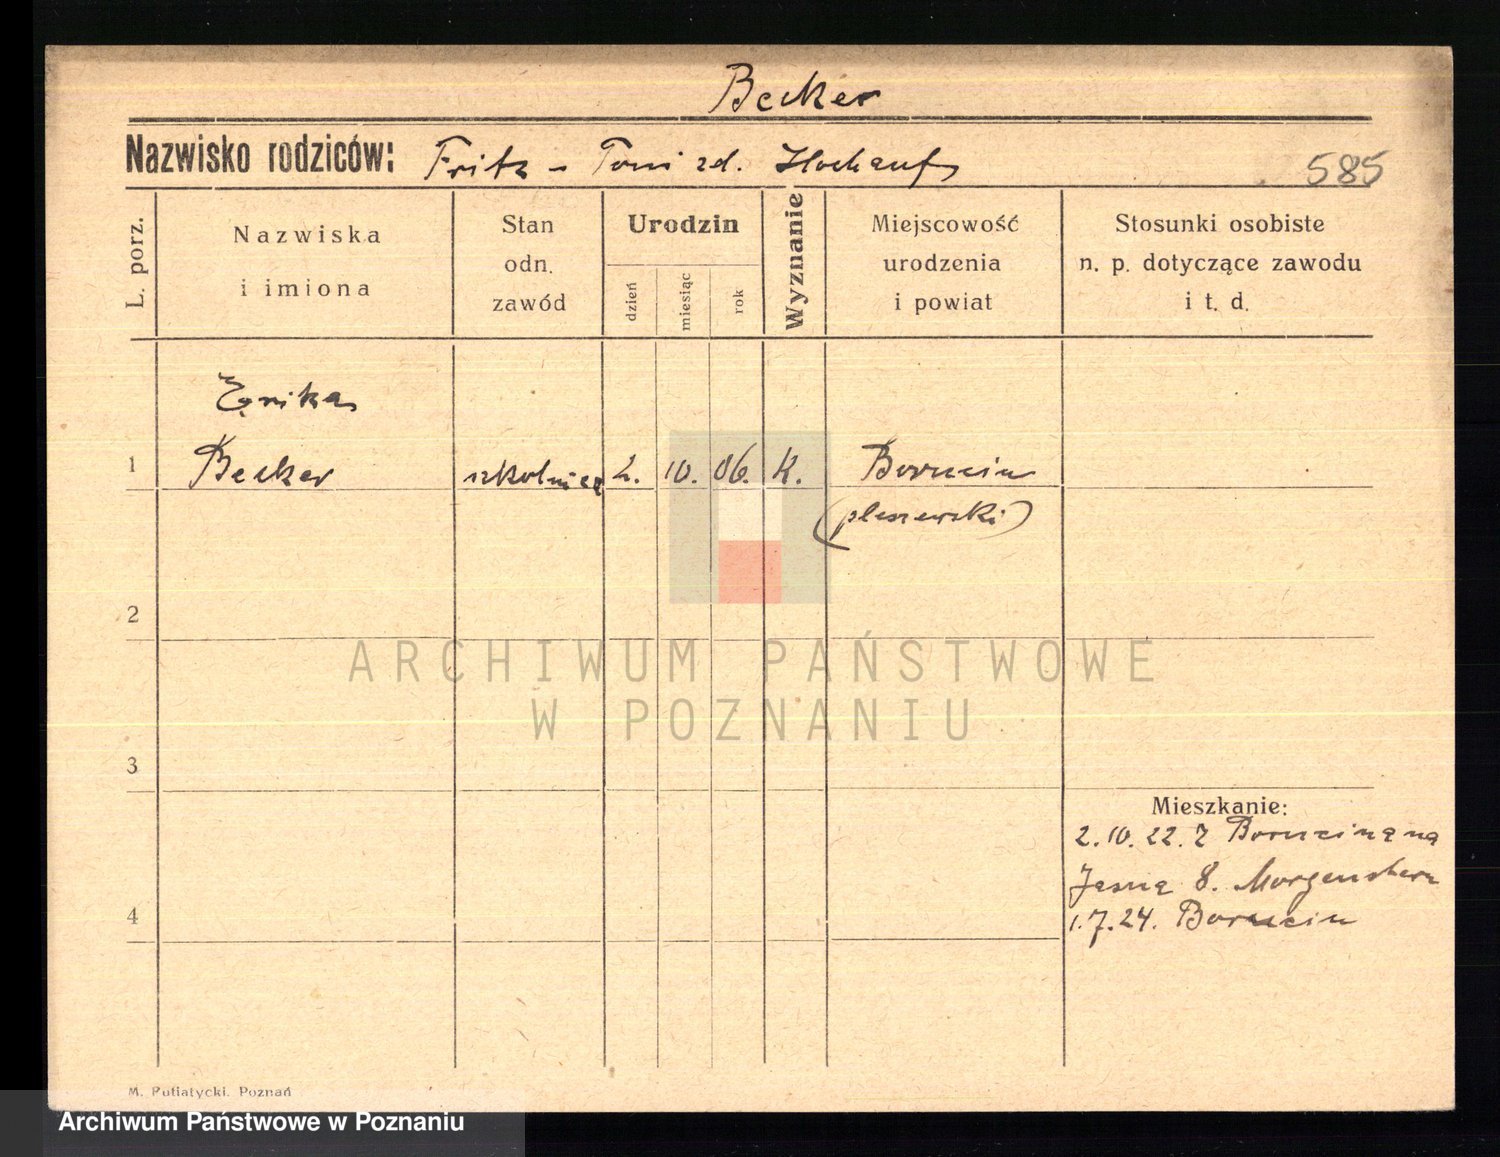 Becker
Nazwisko rodziców: Fritz - Toni zd. Hochauf
585
L. porz.
Nazwiska
i imiona
Stan
odn.
zawód
Urodzin
dzień
miesiąc
rok
Wyznanie
Miejscowość
urodzenia
i powiat
Stosunki osobiste
n. p. dotyczące zawodu
i t. d.
Eryka
1 Becker szkolnica 2. 10. 06. K. Borucin
(pleszewski)
2
ARCHIWUM PAŃSTWOWE
W POZNANIU
3
Mieszkanie:
2.10.22. Z Borucina na
Jasna 8. Morgenstern
4
1.7.24. Borucin
M. Putiatycki. Poznań
Archiwum Państwowe w Poznaniu